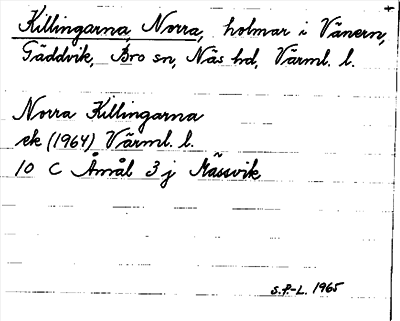 Killingarna, Norra, holmar i Vänern,
Gäddvik, Bro sn, Näs hd, Värml. l.
Norra Killingarna
ek (1964) Värml. l.
10 C Åmål 3 j Mässvik
S.P-L. 1965